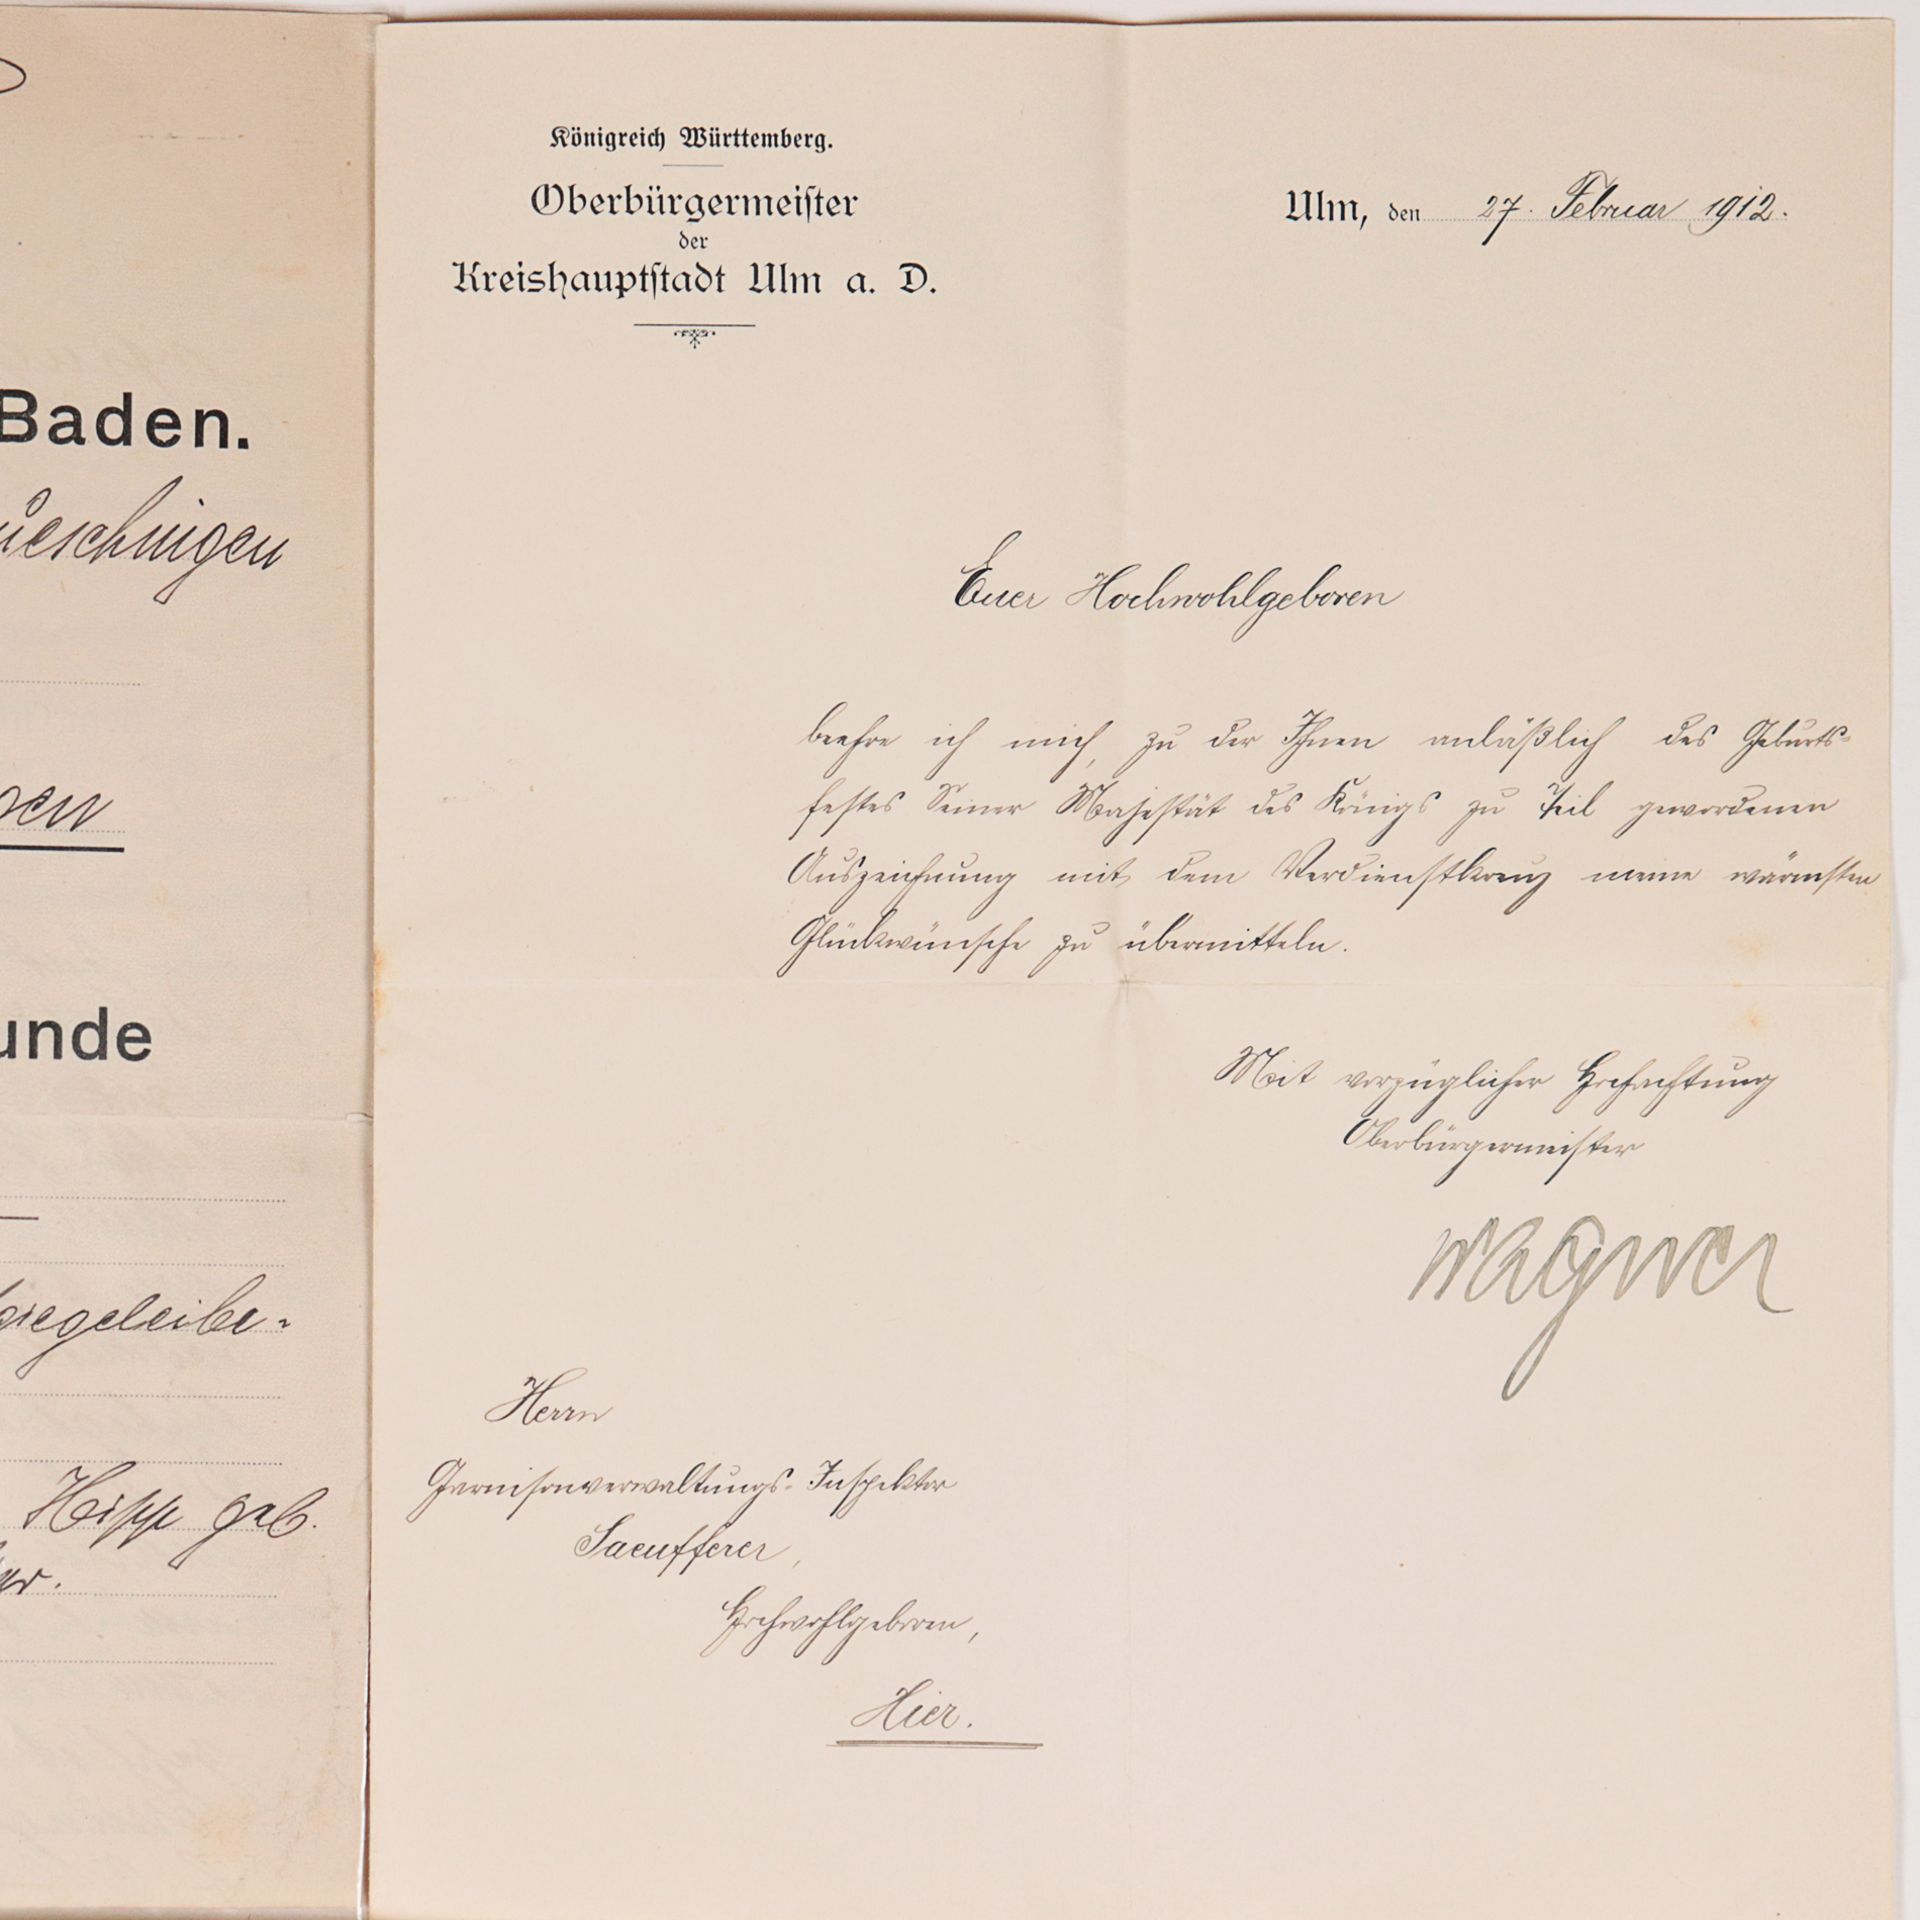 Baden.
ueschingen
unde
Hipp geb.
Königreich Württemberg.
Oberbürgermeister
der
Kreishauptstadt Ulm a. D.
Ulm, den 27. Februar 1912.
Euer Hochwohlgeboren
beehre ich mich, zu der Ihnen anläßlich des Geburts-
festes Seiner Majestät des Königs zu Teil gewordenen
Auszeichnung mit dem Verdienstkreuz meine wärmsten
Glückwünsche zu übermitteln.
Mit vorzüglicher Hochachtung
Oberbürgermeister
Wagner
Herrn
Garnisonverwaltungs-Inspektor
Saeufferer,
Hochwohlgeboren,
Hier.